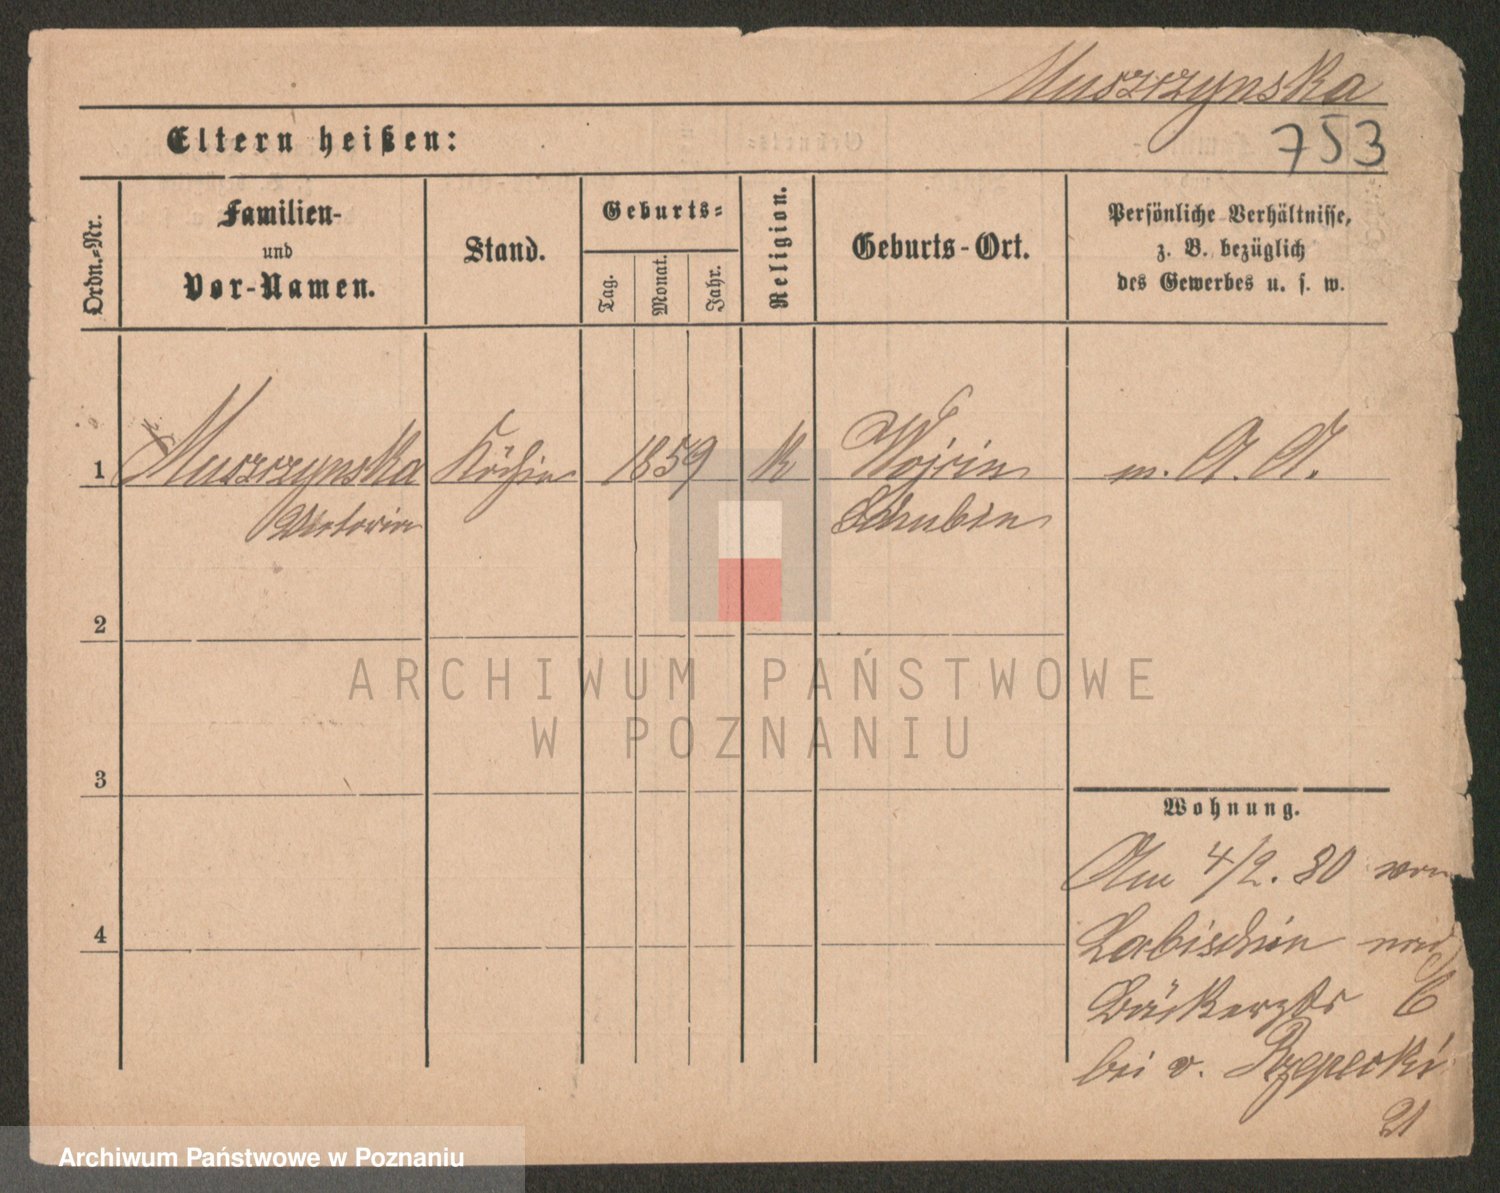 Muszczynska
Eltern heißen:
753
Ordn.-Nr.
Familien-
und
Vor-Namen.
Stand.
Geburts-
Tag.
Monat.
Jahr.
Religion.
Geburts-Ort.
Persönliche Verhältnisse,
z. B. bezüglich
des Gewerbes u. s. w.
1 Muszczynska Köchin 1859 k Wojcin m. A. A.
Victoria Schubin
2
ARCHIWUM PAŃSTWOWE
W POZNANIU
3
Wohnung.
Am 4/2. 80 von
4
Labischin nach
Bäckerstr 6
bei v. Rzepecki
21
Archiwum Państwowe w Poznaniu